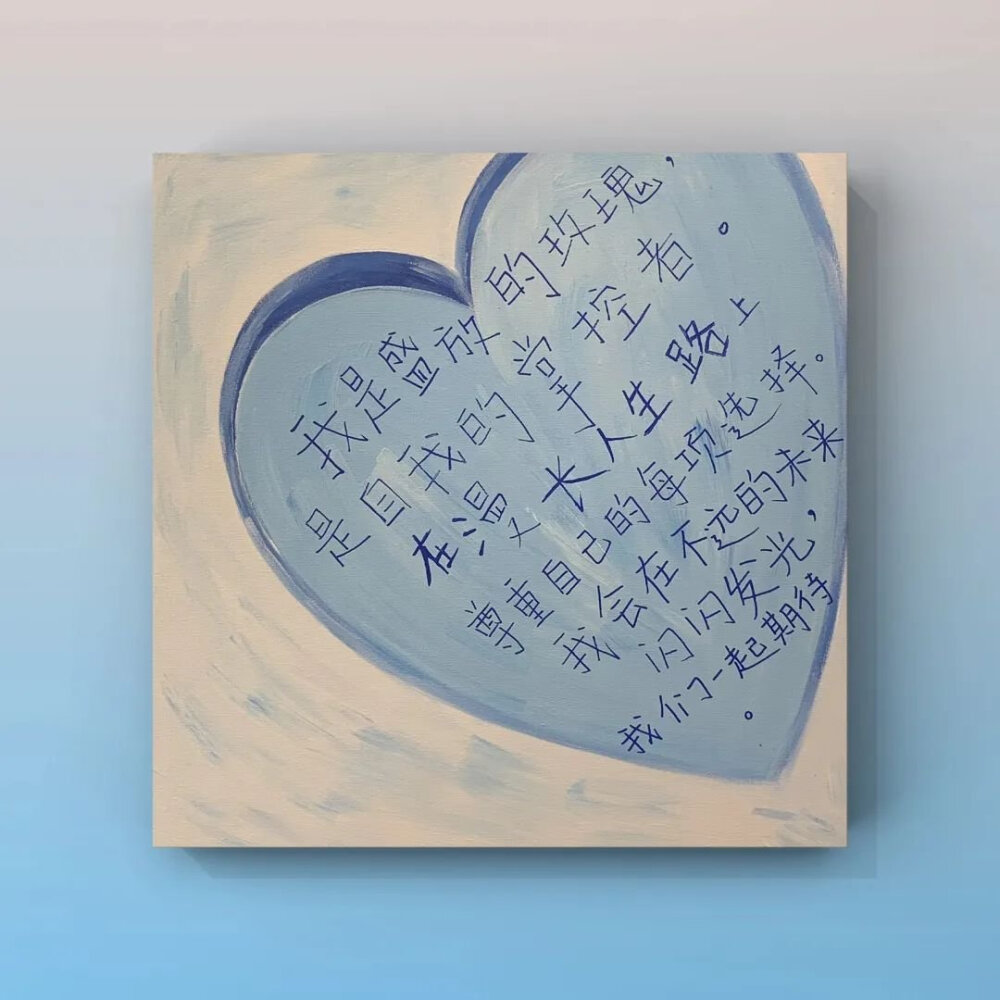 我是盛放的玫瑰，
是自我的掌控者。
在漫长人生路上
尊重自己的每项选择。
我会在不远的未来
闪闪发光，
我们一起期待。